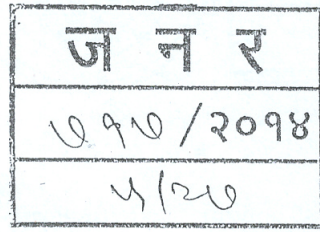 ज न र
७१७/२०१४
५/२७